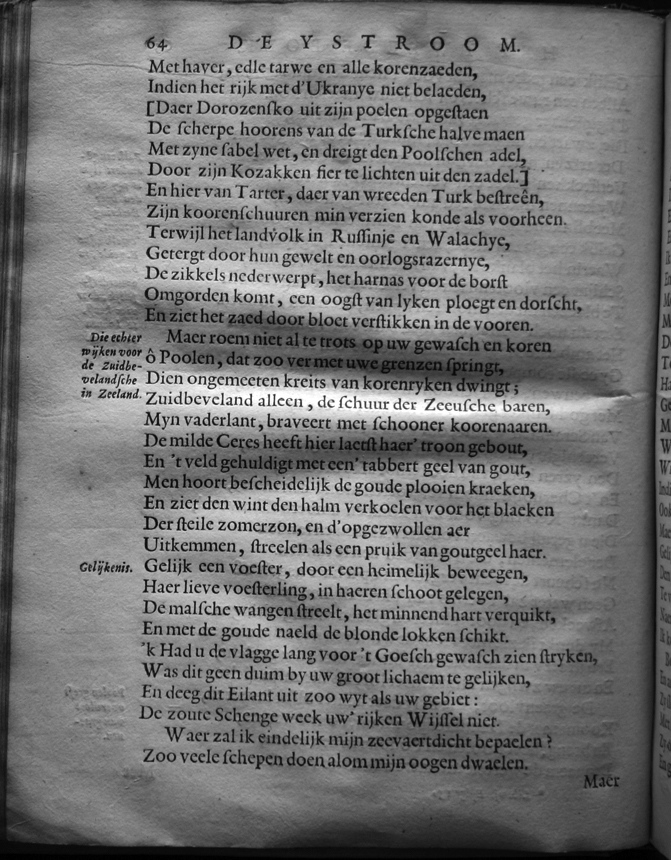 64 D' E Y S T R O O M.
Met haver, edle tarwe en alle korenzaeden,
Indien het rijk met d'Ukranye niet belaeden,
[Daer Dorozensko uit zijn poelen opgestaen
De scherpe hoorens van de Turksche halve maen
Met zyne sabel wet, en dreigt den Poolschen adel,
Door zijn Kozakken fier te lichten uit den zadel.]
En hier van Tarter, daer van wreeden Turk bestreên,
Zijn koorenschuuren min verzien konde als voorheen.
Terwijl het landvolk in Russinje en Walachye,
Getergt door hun gewelt en oorlogsrazernye,
De zikkels nederwerpt, het harnas voor de borst
Omgorden komt, een oogst van lyken ploegt en dorscht,
En ziet het zaed door bloet verstikken in de vooren.
Maer roem niet al te trots op uw gewasch en koren
ô Poolen, dat zoo ver met uwe grenzen springt,
Dien ongemeeten kreits van korenryken dwingt;
Zuidbeveland alleen, de schuur der Zeeusche baren,
Myn vaderlant, braveert met schooner koorenaaren.
De milde Ceres heeft hier laetst haer' troon gebout,
En 't veld gehuldigt met een' tabbert geel van gout,
Men hoort bescheidelijk de goude plooien kraeken,
En ziet den wint den halm verkoelen voor het blaeken
Der steile zomerzon, en d'opgezwollen aer
Uitkemmen, streelen als een pruik van goutgeel haer.
Gelijk een voester, door een heimelijk beweegen,
Haer lieve voesterling, in haeren schoot gelegen,
De malsche wangen streelt, het minnend hart verquikt,
En met de goude naeld de blonde lokken schikt.
'k Had u de vlagge lang voor 't Goesch gewasch zien stryken,
Was dit geen duim by uw groot lichaem te gelijken,
En deeg dit Eilant uit zoo wyt als uw gebiet:
De zoute Schenge week uw' rijken Wijssel niet.
Waer zal ik eindelijk mijn zeevaertdicht bepaelen?
Zoo veele schepen doen alom mijn oogen dwaelen.
Maer
Die echter
wijken voor
de Zuidbe-
velandsche
in Zeeland.
Gelijkenis.